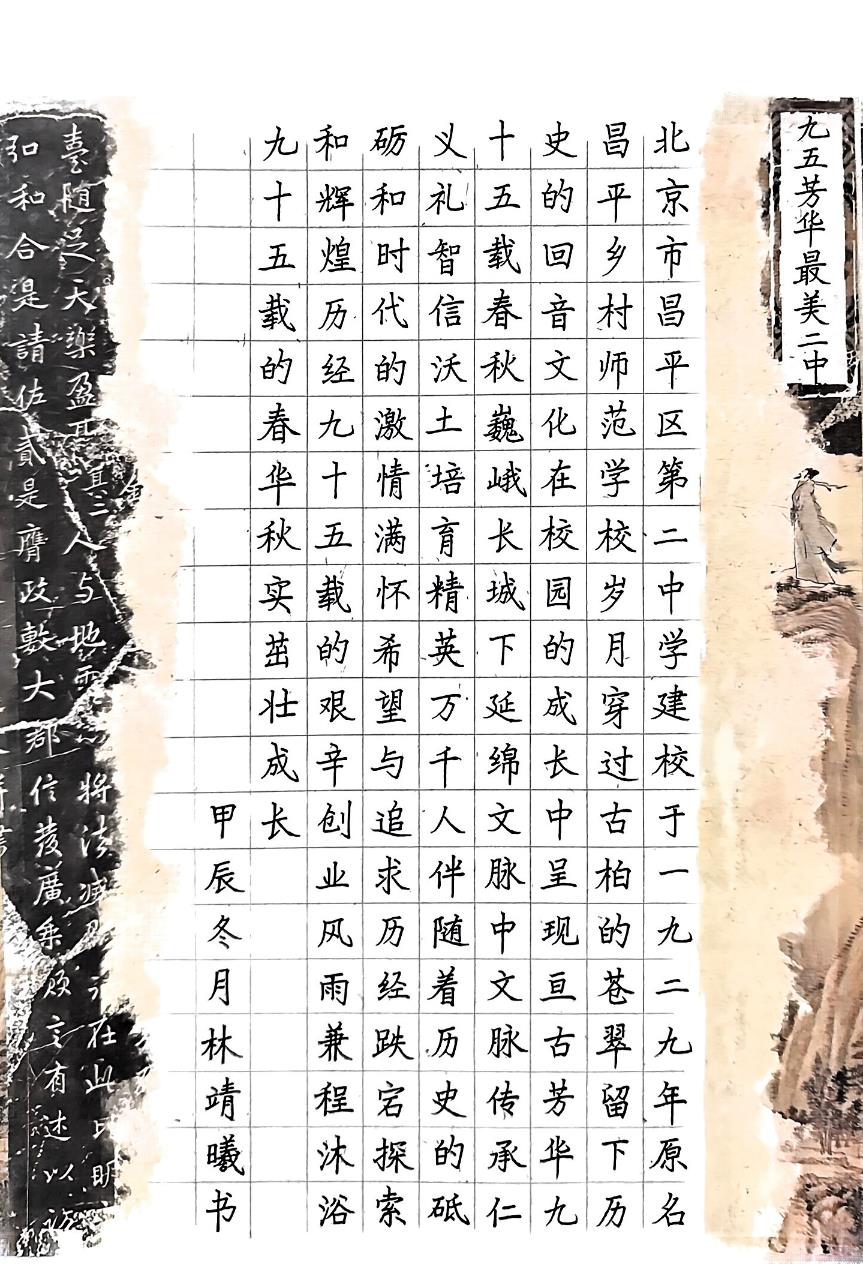 九五芳华最美二中
北京市昌平区第二中学建校于一九二九年原名
昌平乡村师范学校岁月穿过古柏的苍翠留下历
史的回音文化在校园的成长中呈现亘古芳华九
十五载春秋巍峨长城下延绵文脉中文脉传承仁
义礼智信沃土培育精英万千人伴随着历史的砥
砺和时代的激情满怀希望与追求历经跌宕探索
和辉煌历经九十五载的艰辛创业风雨兼程沐浴
九十五载的春华秋实茁壮成长
甲辰冬月林靖曦书
臺随足天樂盈
其三人与地
将法
在此
弘和合是請佐貳是膺政敷大郡
信茂廣乘
言有述以